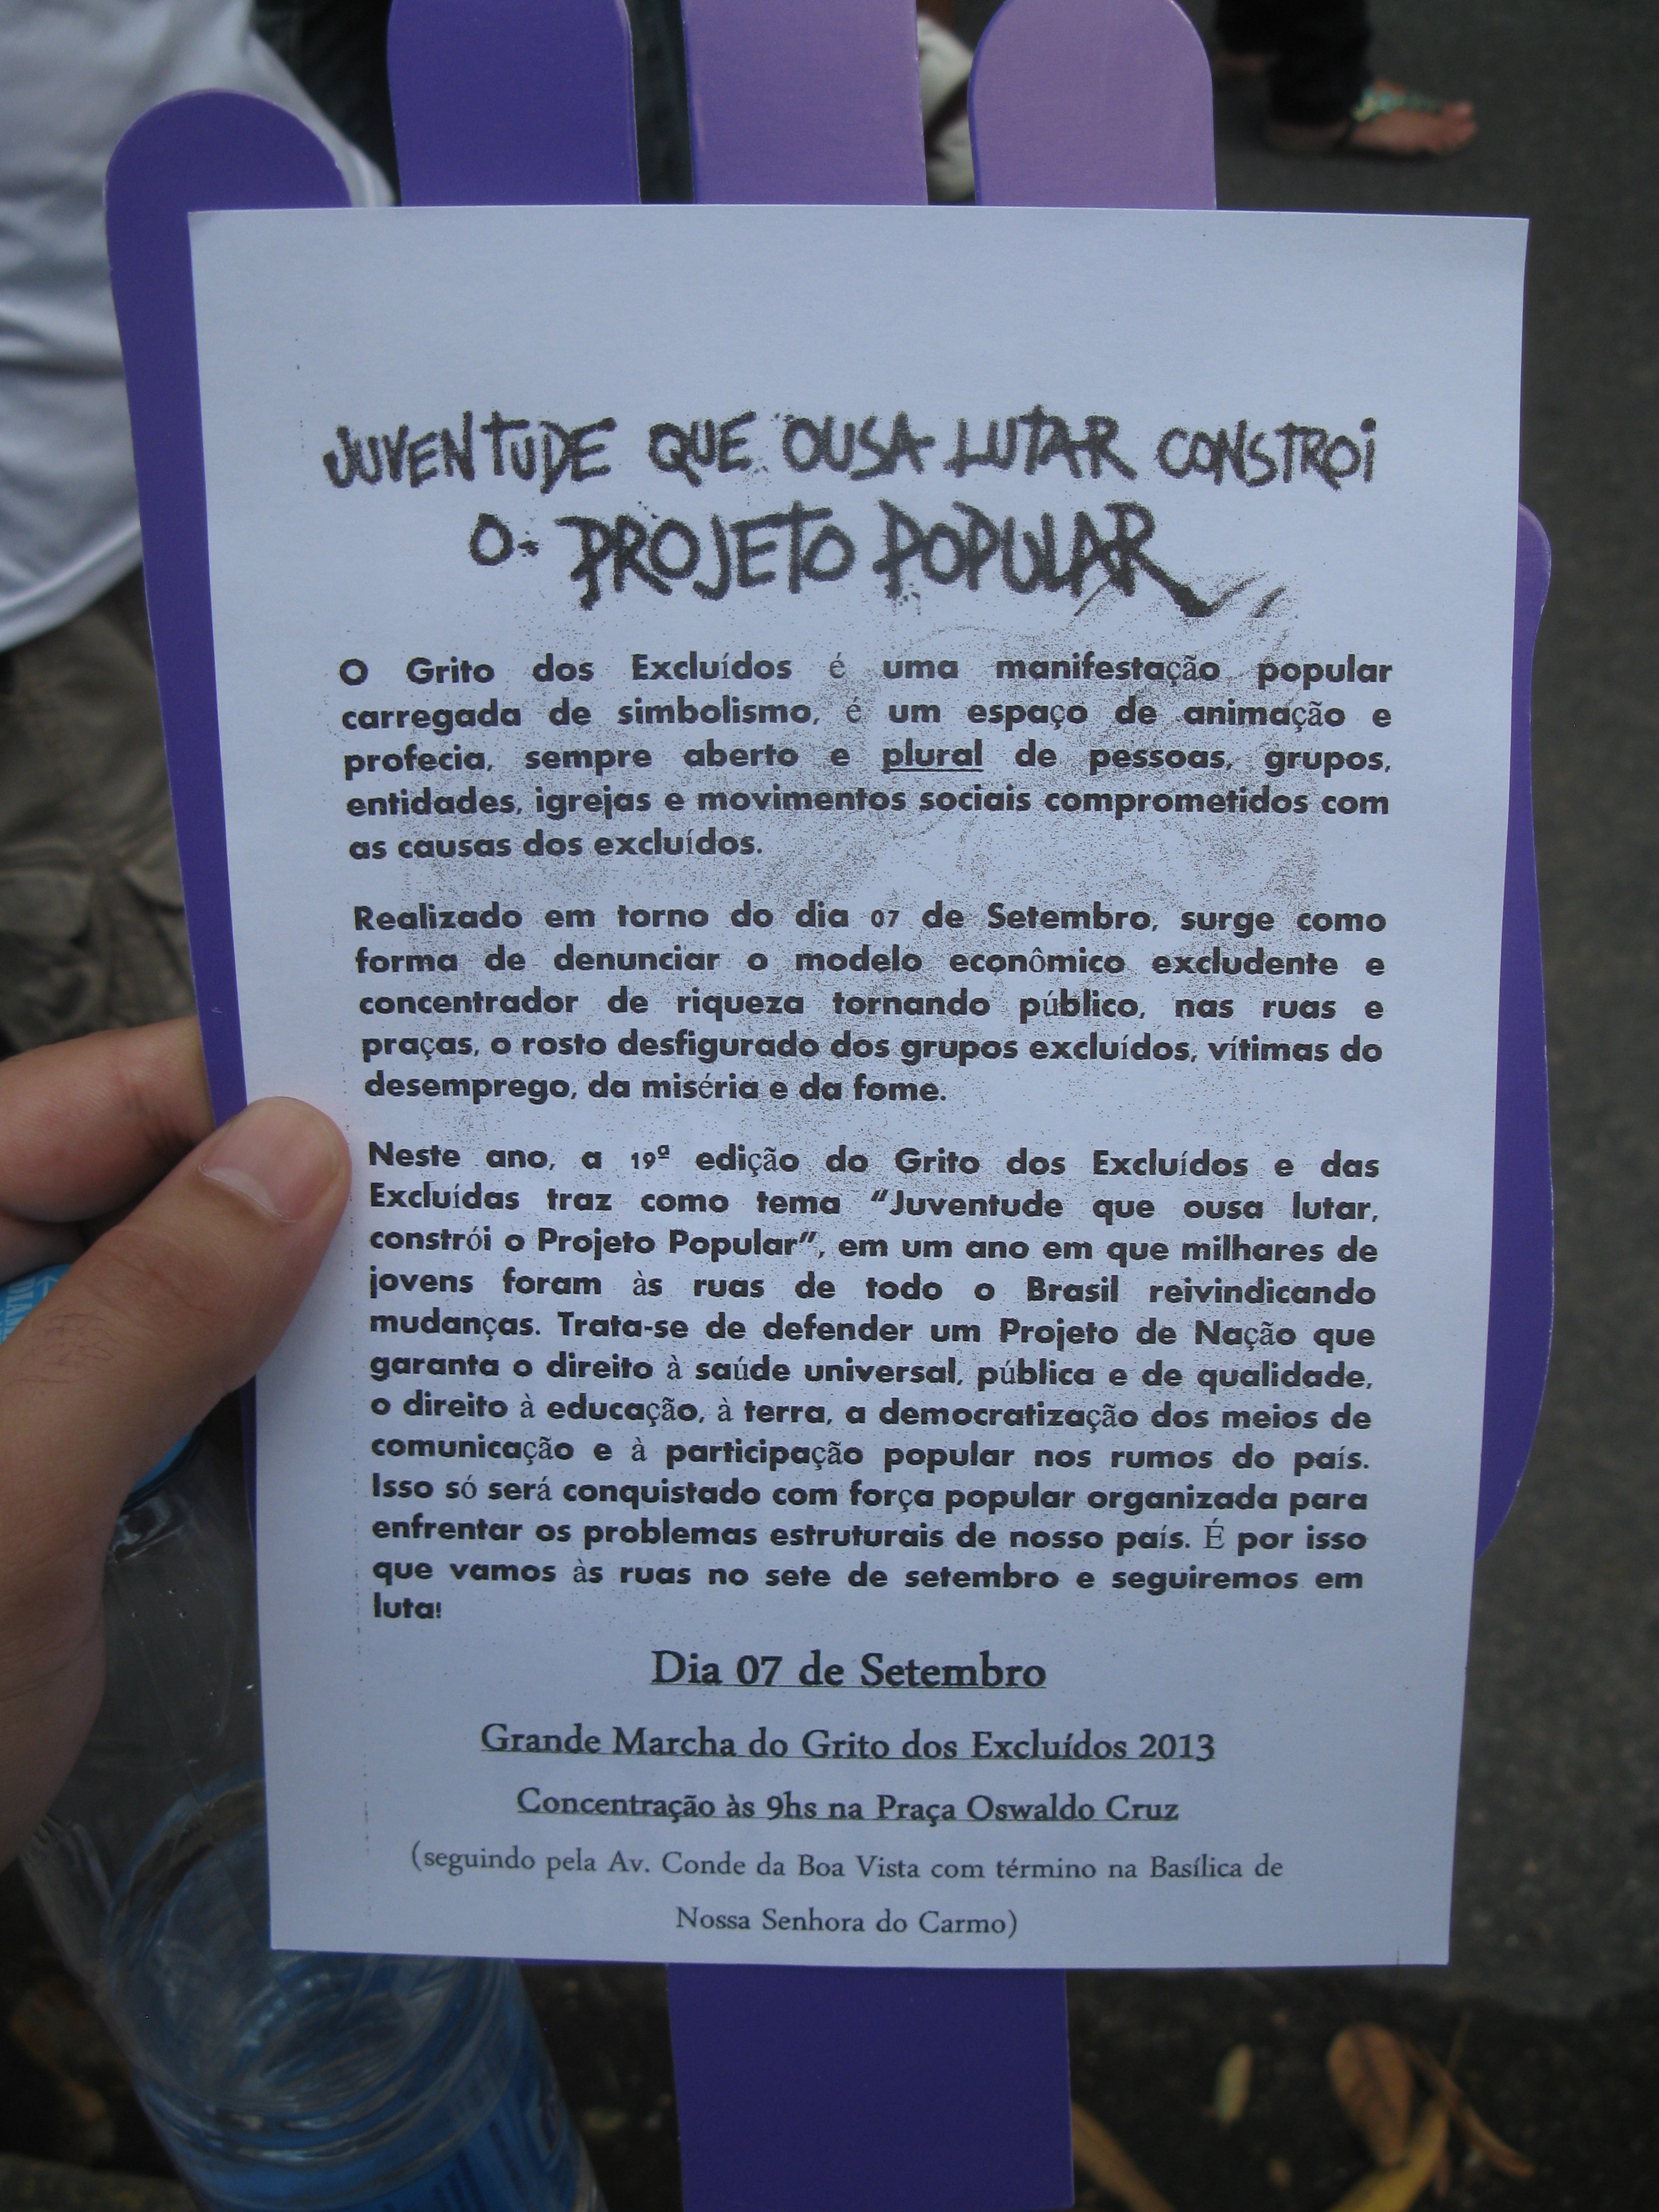 JUVENTUDE QUE OUSA LUTAR CONSTROI
O PROJETO POPULAR
O Grito dos Excluídos é uma manifestação popular
carregada de simbolismo, é um espaço de animação e
profecia, sempre aberto e plural de pessoas, grupos,
entidades, igrejas e movimentos sociais comprometidos com
as causas dos excluídos.
Realizado em torno do dia 07 de Setembro, surge como
forma de denunciar o modelo econômico excludente e
concentrador de riqueza tornando público, nas ruas e
praças, o rosto desfigurado dos grupos excluídos, vítimas do
desemprego, da miséria e da fome.
Neste ano, a 19ª edição do Grito dos Excluídos e das
Excluídas traz como tema "Juventude que ousa lutar,
constrói o Projeto Popular", em um ano em que milhares de
jovens foram às ruas de todo o Brasil reivindicando
mudanças. Trata-se de defender um Projeto de Nação que
garanta o direito à saúde universal, pública e de qualidade,
o direito à educação, à terra, a democratização dos meios de
comunicação e à participação popular nos rumos do país.
Isso só será conquistado com força popular organizada para
enfrentar os problemas estruturais de nosso país. É por isso
que vamos às ruas no sete de setembro e seguiremos em
luta!
Dia 07 de Setembro
Grande Marcha do Grito dos Excluídos 2013
Concentração às 9hs na Praça Oswaldo Cruz
(seguindo pela Av. Conde da Boa Vista com término na Basílica de
Nossa Senhora do Carmo)